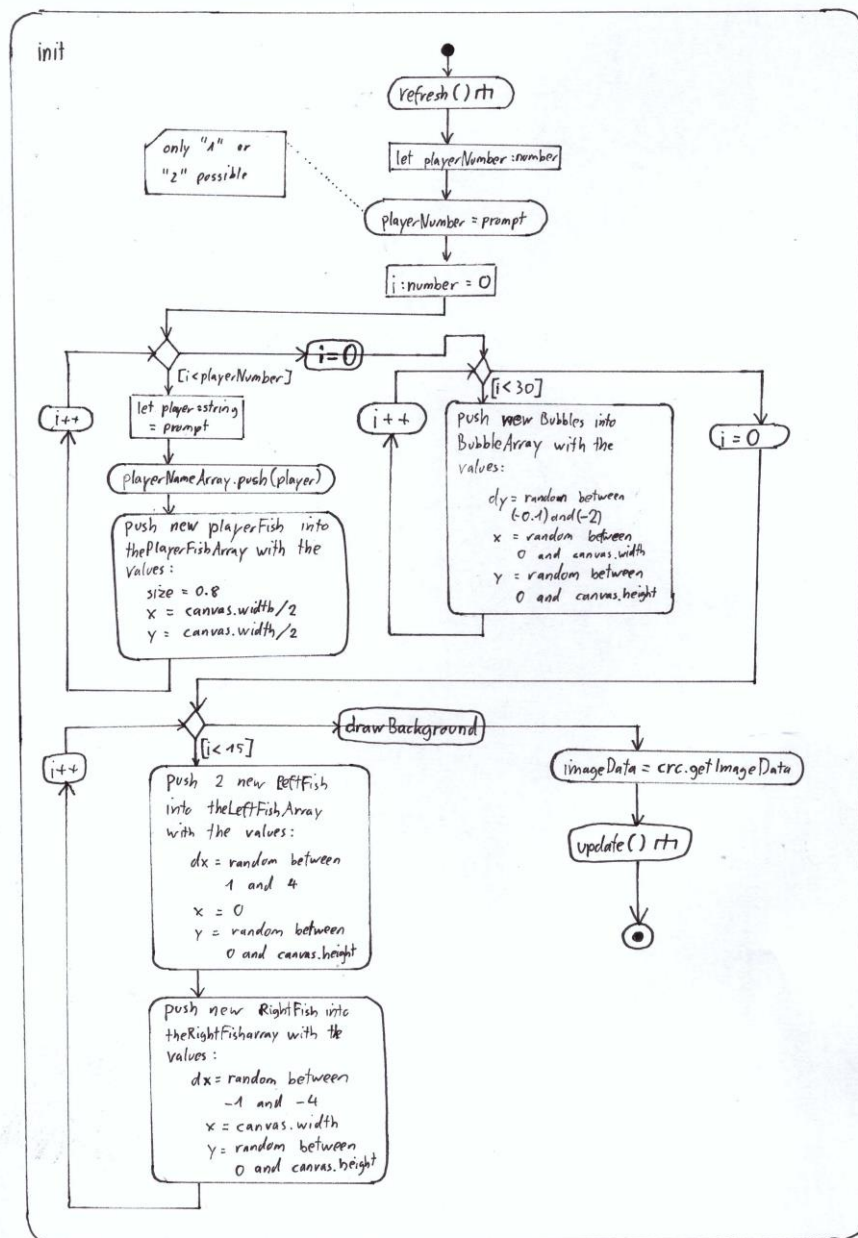 init
refresh()
let playerNumber:number
only "1" or
"2" possible
playerNumber = prompt
i:number = 0
i=0
[i<playerNumber]
i++
let player:string
= prompt
playerNameArray.push(player)
push new playerFish into
thePlayerFishArray with the
values:
size = 0.8
x = canvas.width/2
y = canvas.width/2
[i<30]
i++
push new Bubbles into
BubbleArray with the
values:
dy = random between
(-0.1) and (-2)
x = random between
0 and canvas.width
y = random between
0 and canvas.height
i=0
[i<15]
i++
push 2 new LeftFish
into theLeftFishArray
with the values:
dx = random between
1 and 4
x = 0
y = random between
0 and canvas.height
push new RightFish into
theRightFisharray with the
values:
dx = random between
-1 and -4
x = canvas.width
y = random between
0 and canvas.height
drawBackground
imageData = crc.getImageData
update()